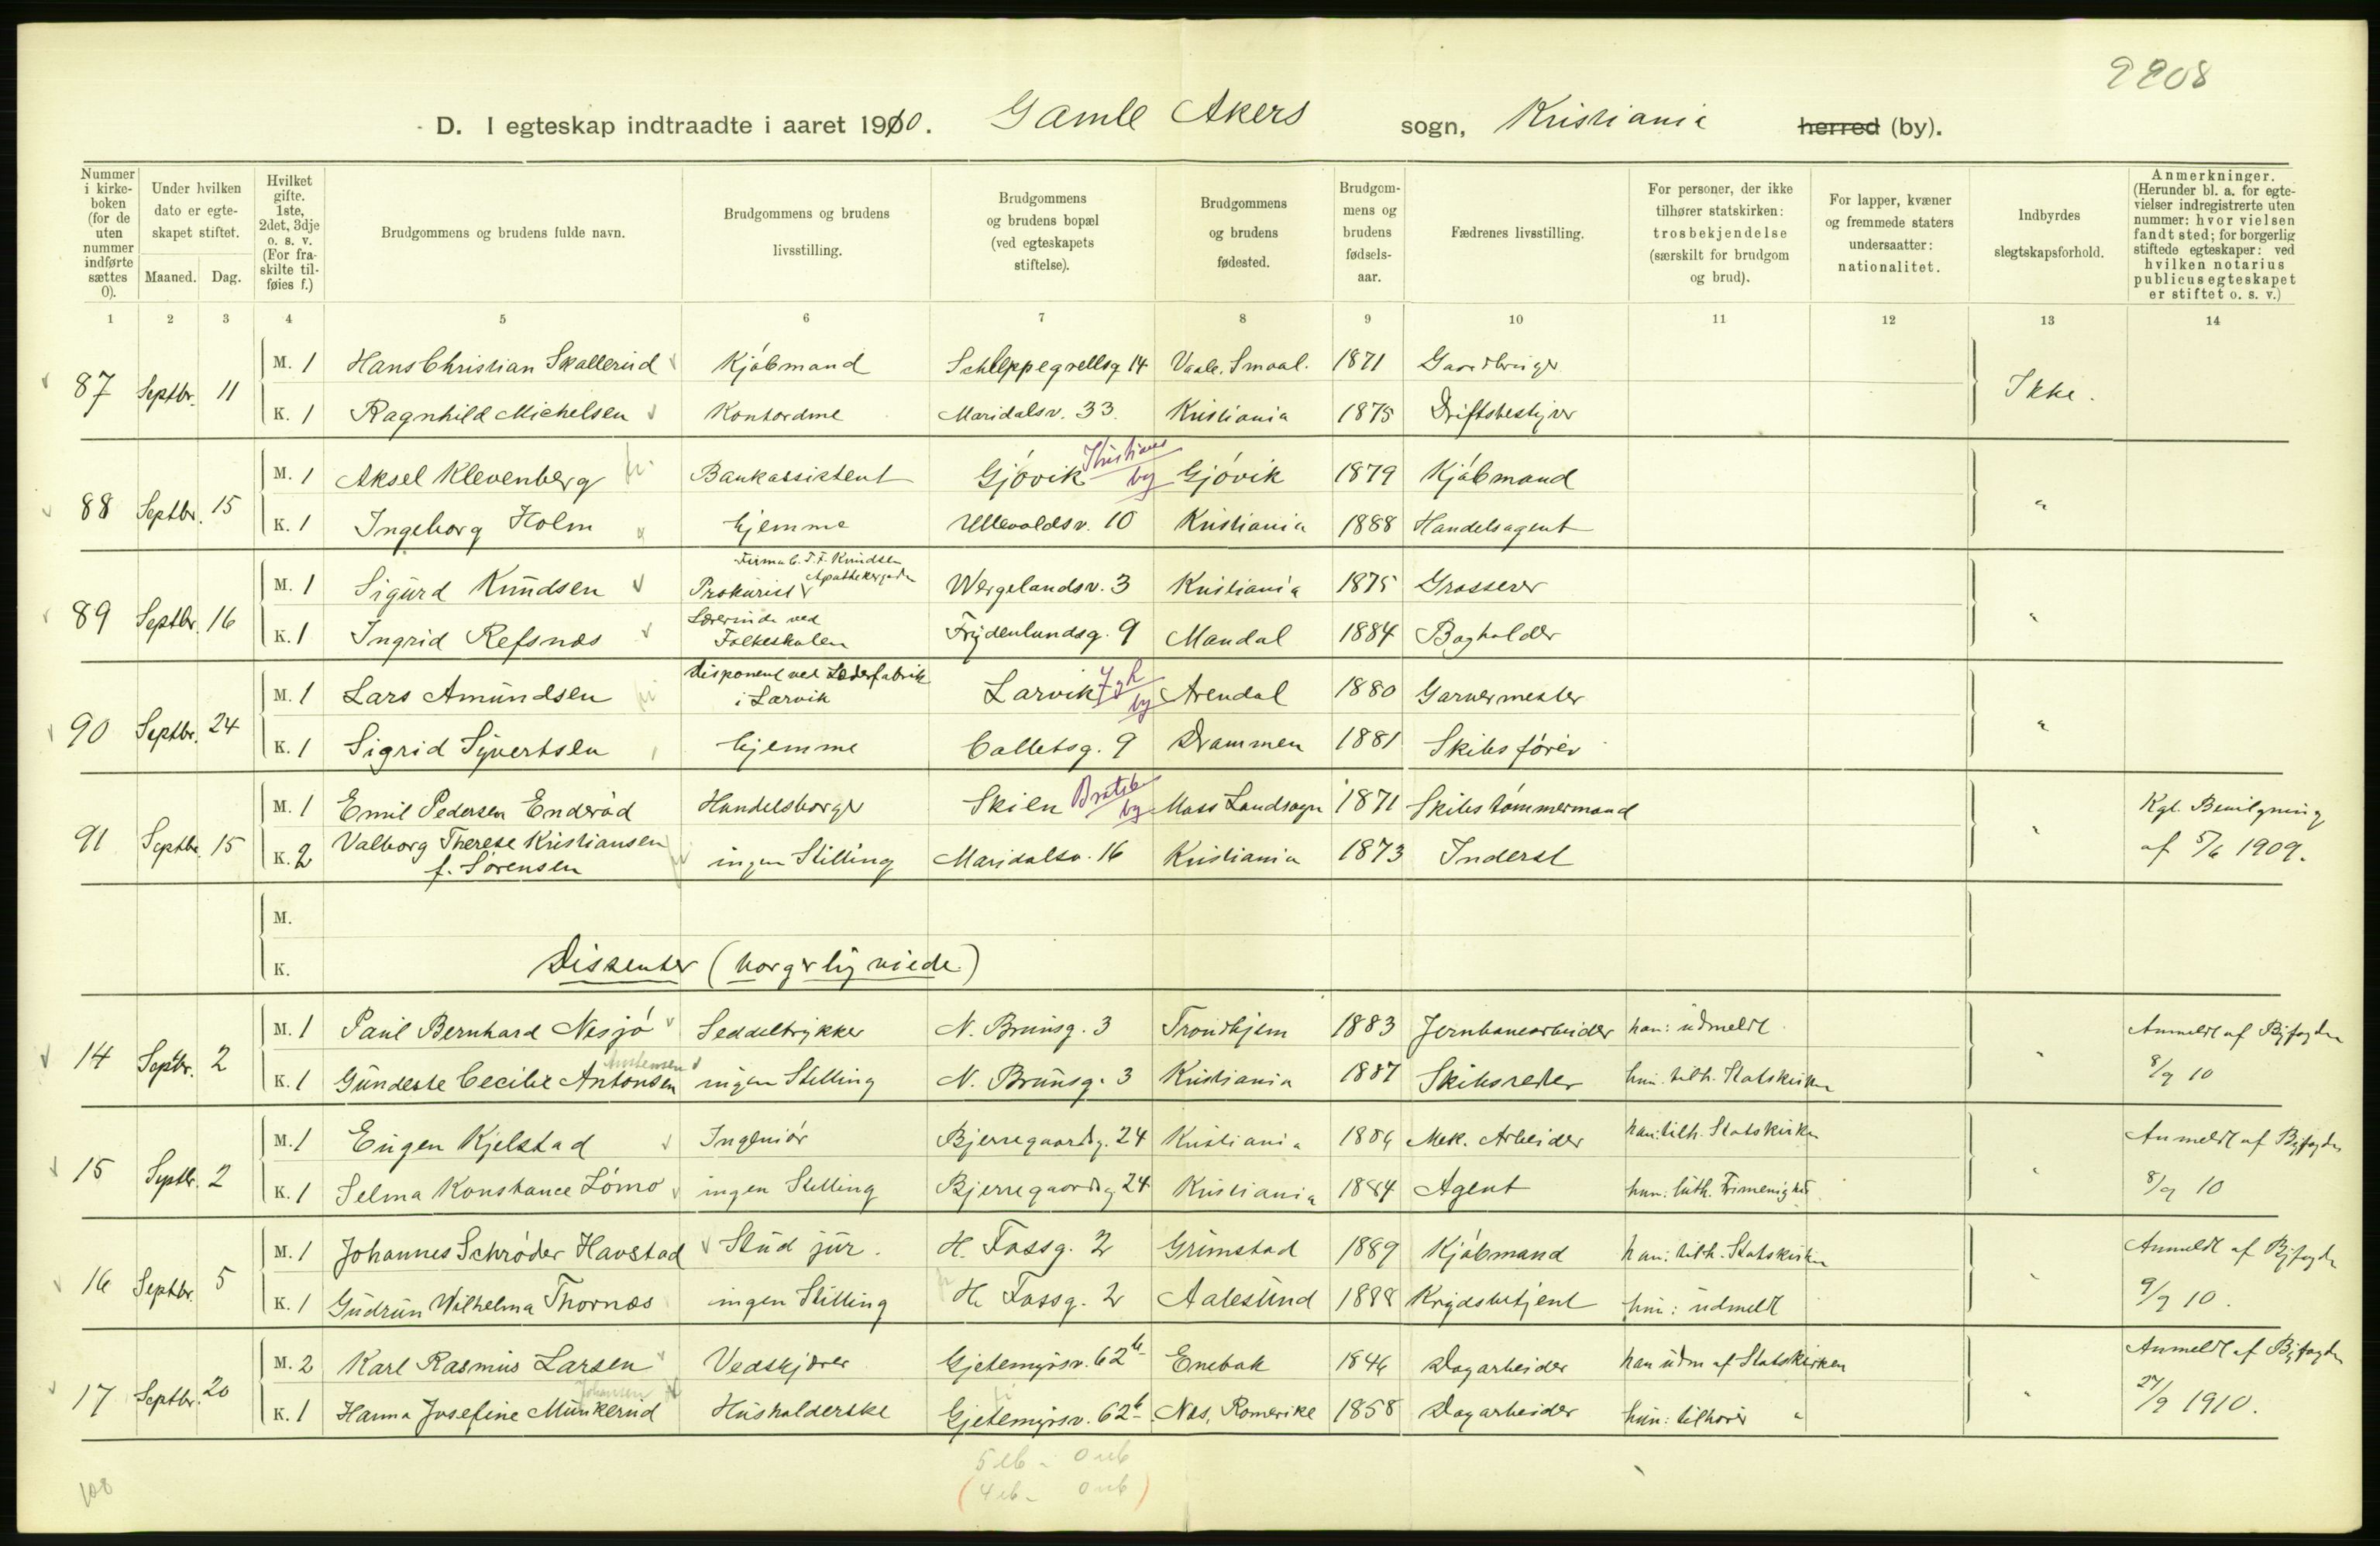 2208
D. I egteskap indtraadte i aaret 1910. Gamle Akers sogn, Kristiania herred (by).
Nummer i kirke-boken (for de uten nummer indførte sættes 0).
Under hvilken dato er egte-skapet stiftet.
Maaned. Dag.
Hvilket gifte. 1ste, 2det, 3dje o. s. v. (For fra-skilte til-føies f.)
Brudgommens og brudens fulde navn.
Brudgommens og brudens livsstilling.
Brudgommens og brudens bopæl (ved egteskapets stiftelse).
Brudgommens og brudens fødested.
Brudgom-mens og brudens fødsels-aar.
Fædrenes livsstilling.
For personer, der ikke tilhører statskirken: trosbekjendelse (særskilt for brudgom og brud).
For lapper, kvæner og fremmede staters undersaatter: nationalitet.
Indbyrdes slegtskapsforhold.
Anmerkninger. (Herunder bl. a. for egte-vielser indregistrerte uten nummer: hvor vielsen fandt sted; for borgerlig stiftede egteskaper: ved hvilken notarius publicus egteskapet er stiftet o. s. v.)
1 2 3 4 5 6 7 8 9 10 11 12 13 14
87 Septbr. 11 M. 1 Hans Christian Skallerud Kjøbmand Schleppegrellsg 14 Vaale. Smaal. 1871 Gaardbruger Ikke.
K. 1 Ragnhild Michelsen Kontordme Maridalsv. 33. Kristiania 1875 Driftsbestyrer
88 Septbr. 15 M. 1 Aksel Klevenberg Bankassistent Gjøvik Kristians by Gjøvik 1879 Kjøbmand "
K. 1 Ingeborg Holm hjemme Ullevoldsv. 10 Kristiania 1888 Handelsagent
Firma C. T. F. Knudsen
89 Septbr. 16 M. 1 Sigurd Knudsen Prokurist Wergelandsv. 3 Kristiania 1875 Grosserer "
K. 1 Ingrid Refsnæs Lærerinde ved Folkeskolen Frydenlundsg. 9 Mandal 1884 Bogholder
90 Septbr. 24 M. 1 Lars Amundsen Disponent ved Læderfabrik i Larvik Larvik by Arendal 1880 Garvermester "
K. 1 Sigrid Syvertsen hjemme Colletsg. 9 Drammen 1881 Skibsfører
91 Septbr. 15 M. 1 Emil Pedersen Enderød Handelsborger Skien Bratsb by Moss Landsogn 1871 Skibstømmermand " Kgl. Bevilgning
K. 2 Valborg Therese Kristiansen f. Sørensen ingen Stilling Maridalsv. 16 Kristiania 1873 Inderst af 5/6 1909.
M.
K. Dissenter (borgerlig viede)
14 Septbr. 2 M. 1 Paul Bernhard Nesjø Seddeltrykker N. Brunsg. 3 Trondhjem 1883 Jernbanearbeider han: udmeldt " Anmeldt af Byfogden
K. 1 Gundeste Cecilie Antonsen ingen Stilling N. Brunsg. 3 Kristiania 1887 Skibsreder hun: tilh. Statskirken 8/9 10
15 Septbr. 2 M. 1 Eugen Kjelstad Ingeniør Bjerregaardsg. 24 Kristiania 1886 Mek. Arbeider han: tilh. Statskirken " Anmeldt af Byfogden
K. 1 Selma Konstance Lømo ingen Stilling Bjerregaardsg 24 Kristiania 1884 Agent hun: luth. Frimenighed 8/9 10
16 Septbr. 5 M. 1 Johannes Schrøder Havstad Stud jur. H. Fossg. 2 Grimstad 1889 Kjøbmand han: tilh. Statskirken " Anmeldt af Byfogden
K. 1 Gudrun Wilhelma Thornæs ingen Stilling H. Fossg. 2 Aalesund 1888 Krydsbetjent hun: udmeldt 9/9 10.
17 Septbr. 20 M. 2 Karl Rasmus Larsen Vedskjærer Gjetemyrsv. 62b Enebak 1846 Dagarbeider han udm af Statskirken " Anmeldt af Byfogden
K. 1 Hanna Josefine Munkerud Husholderske Gjetemyrsv. 62b Nes, Romerike 1858 Dagarbeider hun: tilhører " 27/9 1910.